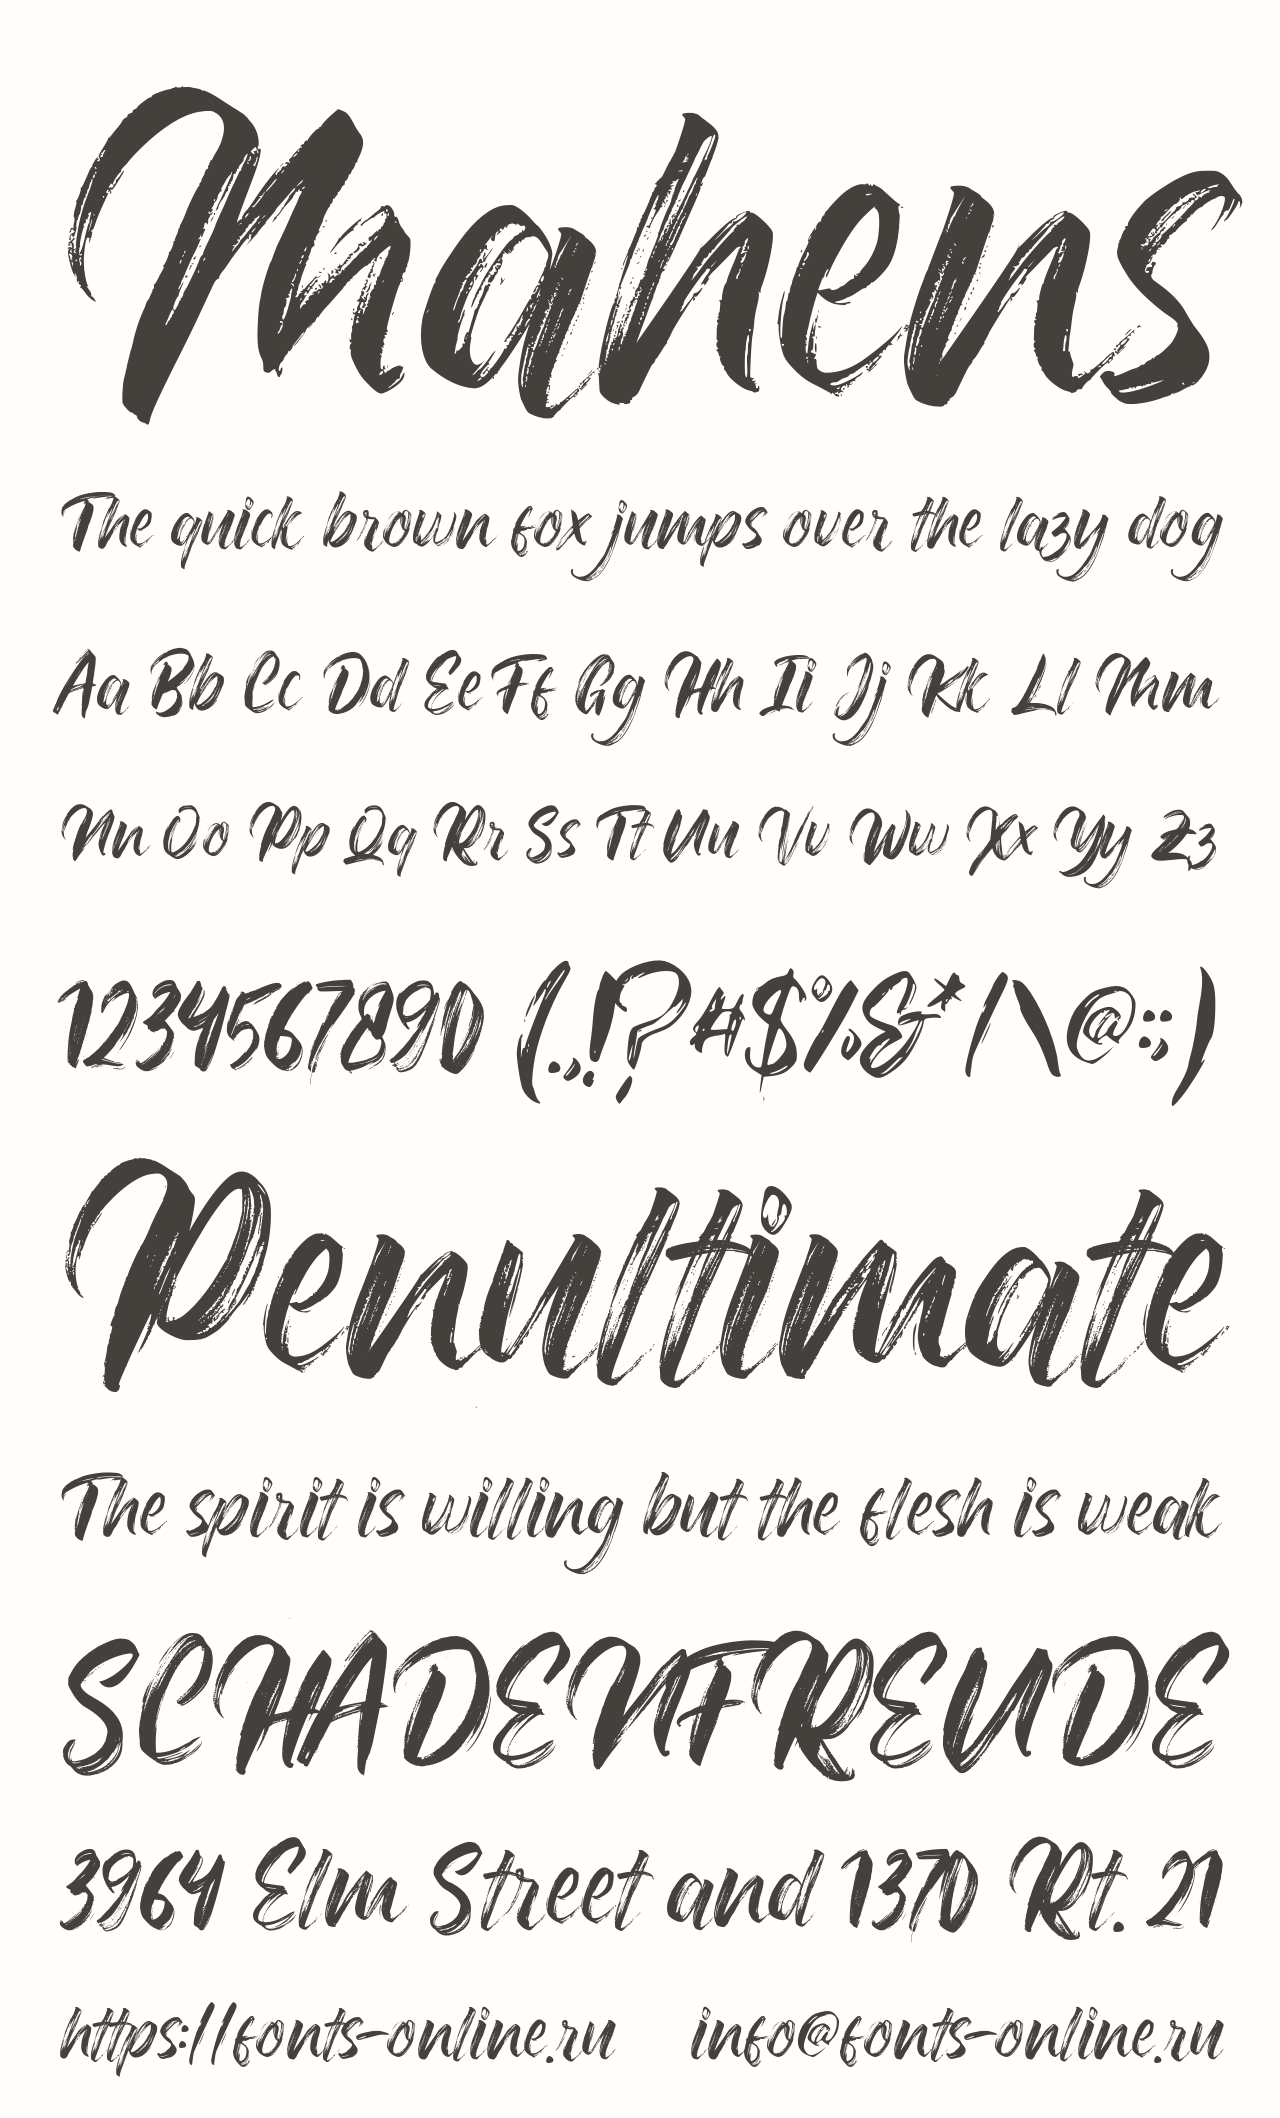 Mahens
The quick brown fox jumps over the lazy dog
Aa Bb Cc Dd Ee Ff Gg Hh Ii Jj Kk Ll Mm
Nn Oo Pp Qq Rr Ss Tt Uu Vv Ww Xx Yy Zz
1234567890 (.,!?#$%&*/\@:;)
Penultimate
The spirit is willing but the flesh is weak
SCHADENFREUDE
3964 Elm Street and 1370 Rt. 21
https://fonts-online.ru info@fonts-online.ru